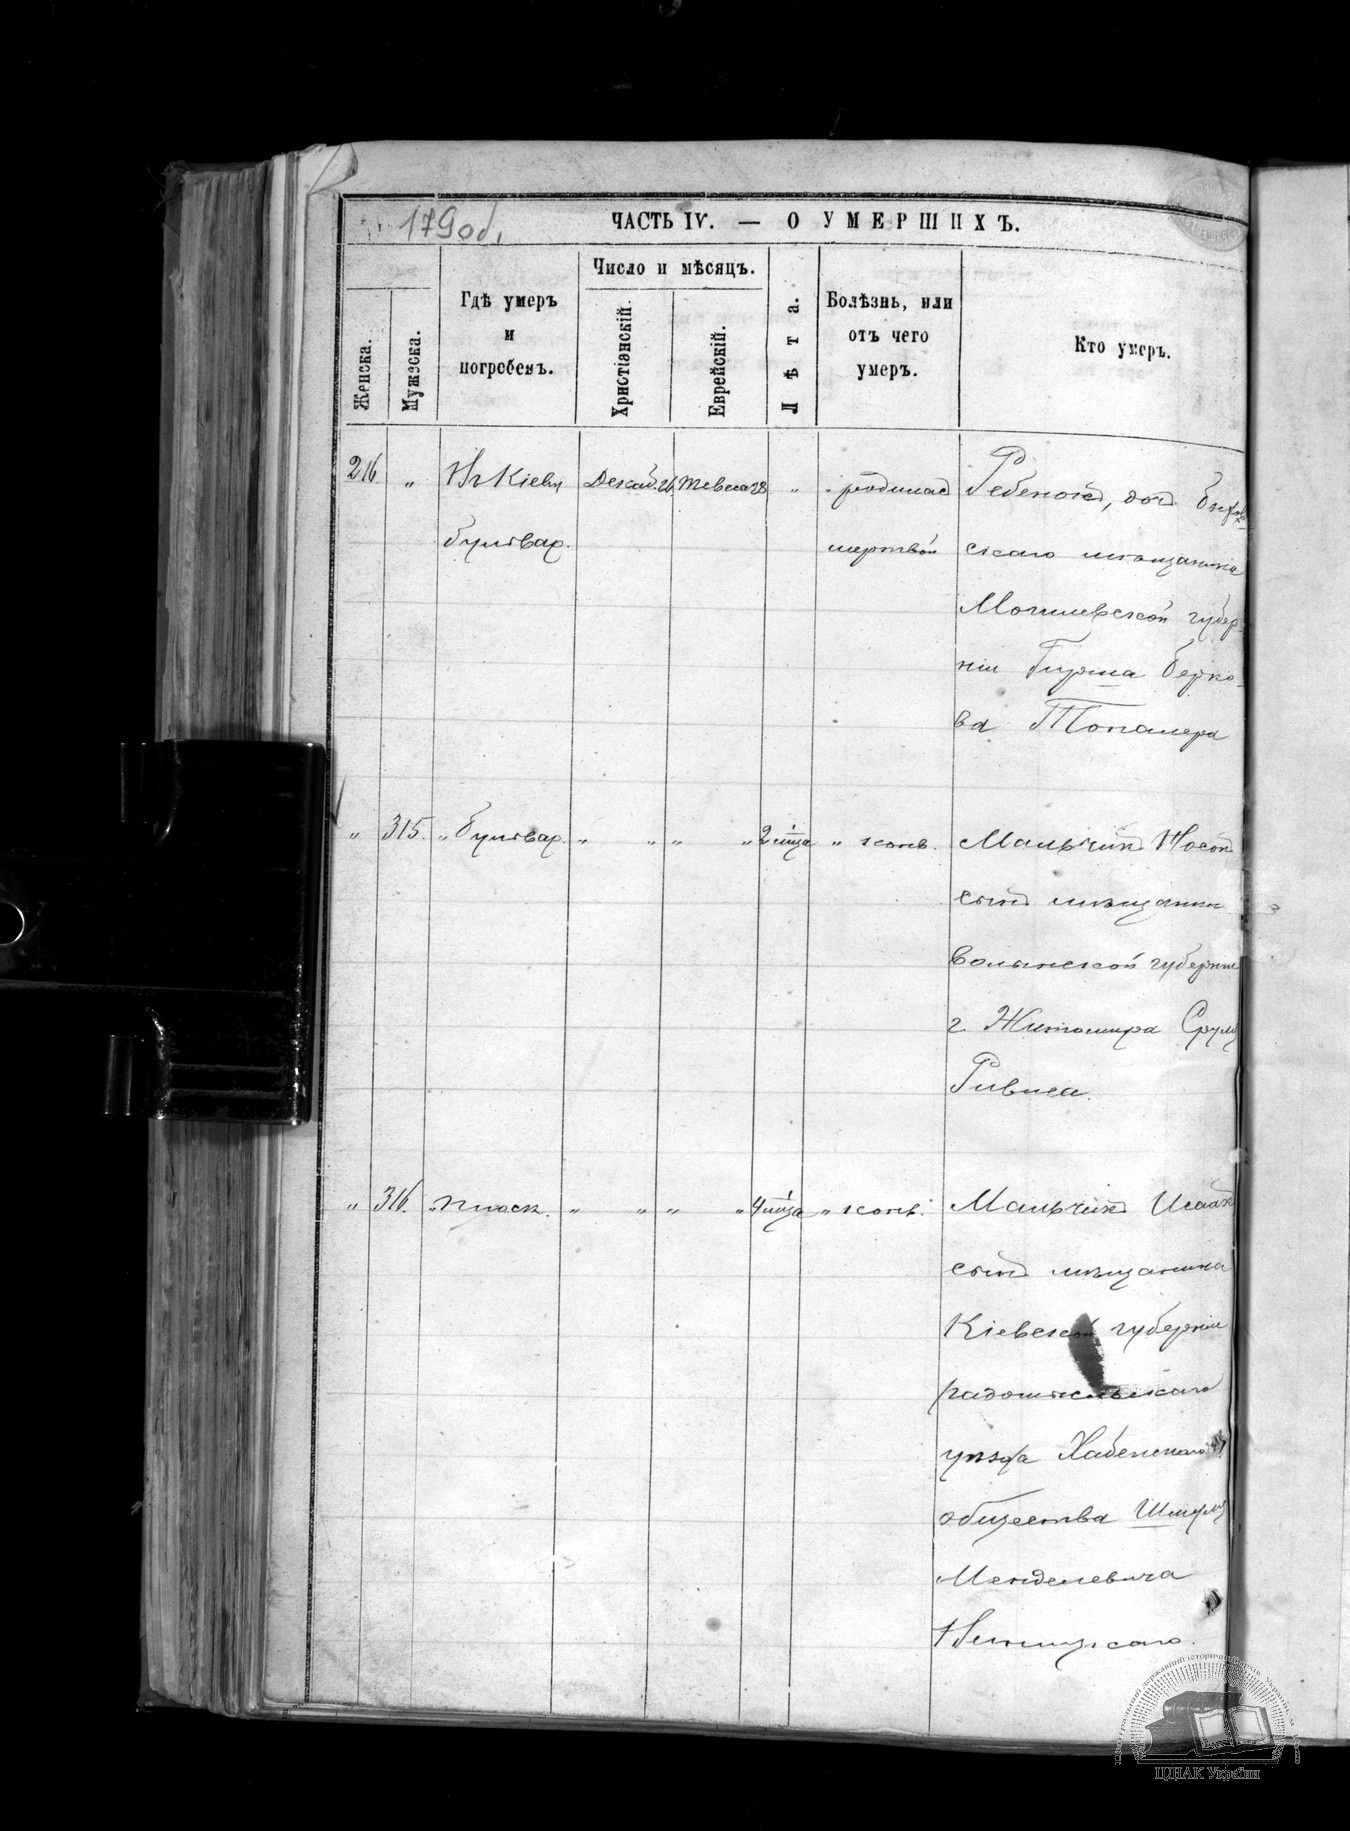 179 об.
ЧАСТЬ IV. — О УМЕРШИХЪ.
Женска.
Мужеска.
Гдѣ умеръ
и
погребенъ.
Число и мѣсяцъ.
Христіанскій.
Еврейскій.
Лѣта.
Болѣзнь, или
отъ чего
умеръ.
Кто умеръ.
216 „ Въ Кіевѣ Декаб. 26 Тевеса 28 „ родилась Ребенокъ, дочь
бульвар. мертвой скаго мѣщанина
Могилевской губер-
ніи Гирша Берко-
ва Топалера
„ 315. „ бульвар. „ „ „ „ 2 м-ца „ конв. Мальчикъ Носонъ
сынъ мѣщанин
Волынской губерніи
г. Житомира Сруля
Ривиса.
„ 316. „ плоск. „ „ „ „ 4 м-ца „ конв. Мальчикъ Исаак
сынъ мѣщанина
Кіевской губерніи
радомысльскаго
уѣзда Хабенскаго
общества Шмуля
Менделевича
ЦДІАК України